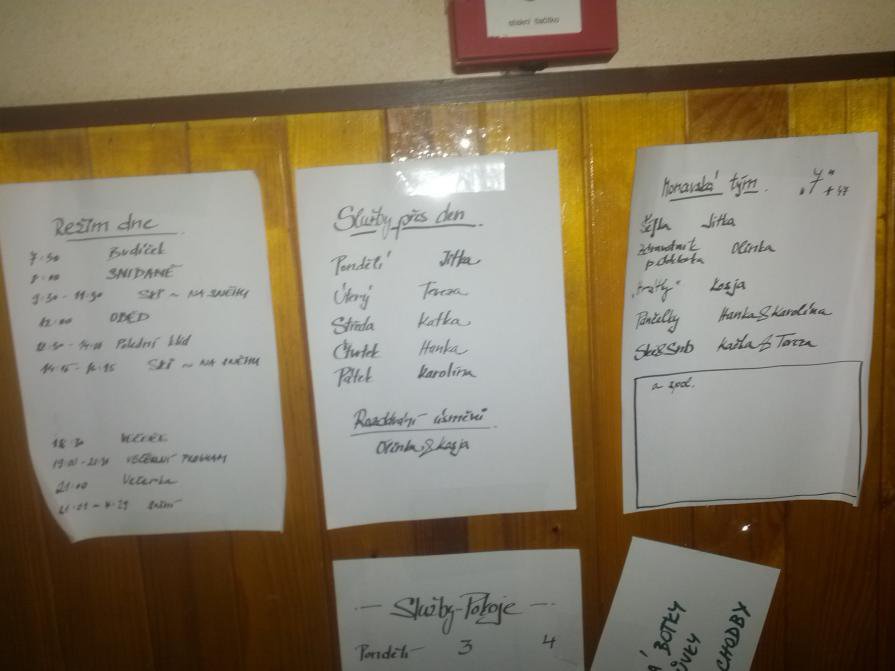 stiskni tlačítko
Režim dne
7:30 Budíček
8:00 SNÍDANĚ
9:30 - 11:30 SKI ~ NA SNĚHU
12:00 OBĚD
12:30 - 14:00 Polední klid
14:15 - 16:15 SKI ~ NA SNĚHU
18:30 VEČEŘE
VEČERNÍ PROGRAM
21:00 Večerka
Služby přes den
Pondělí Jitka
Úterý Tereza
Středa Katka
Čtvrtek Hanka
Pátek Karolína
Rozdávání úsměvů
Olinka & Kasja
Moravská tým "7"
Šéfka Jitka
Zdravotník Olinka
Kasja
Pančelky Hanka & Karolína
Ski&Snb Katka & Tereza
a spol.
Služby-Pokoje
Pondělí 3 4
BOTKY
CHODBY